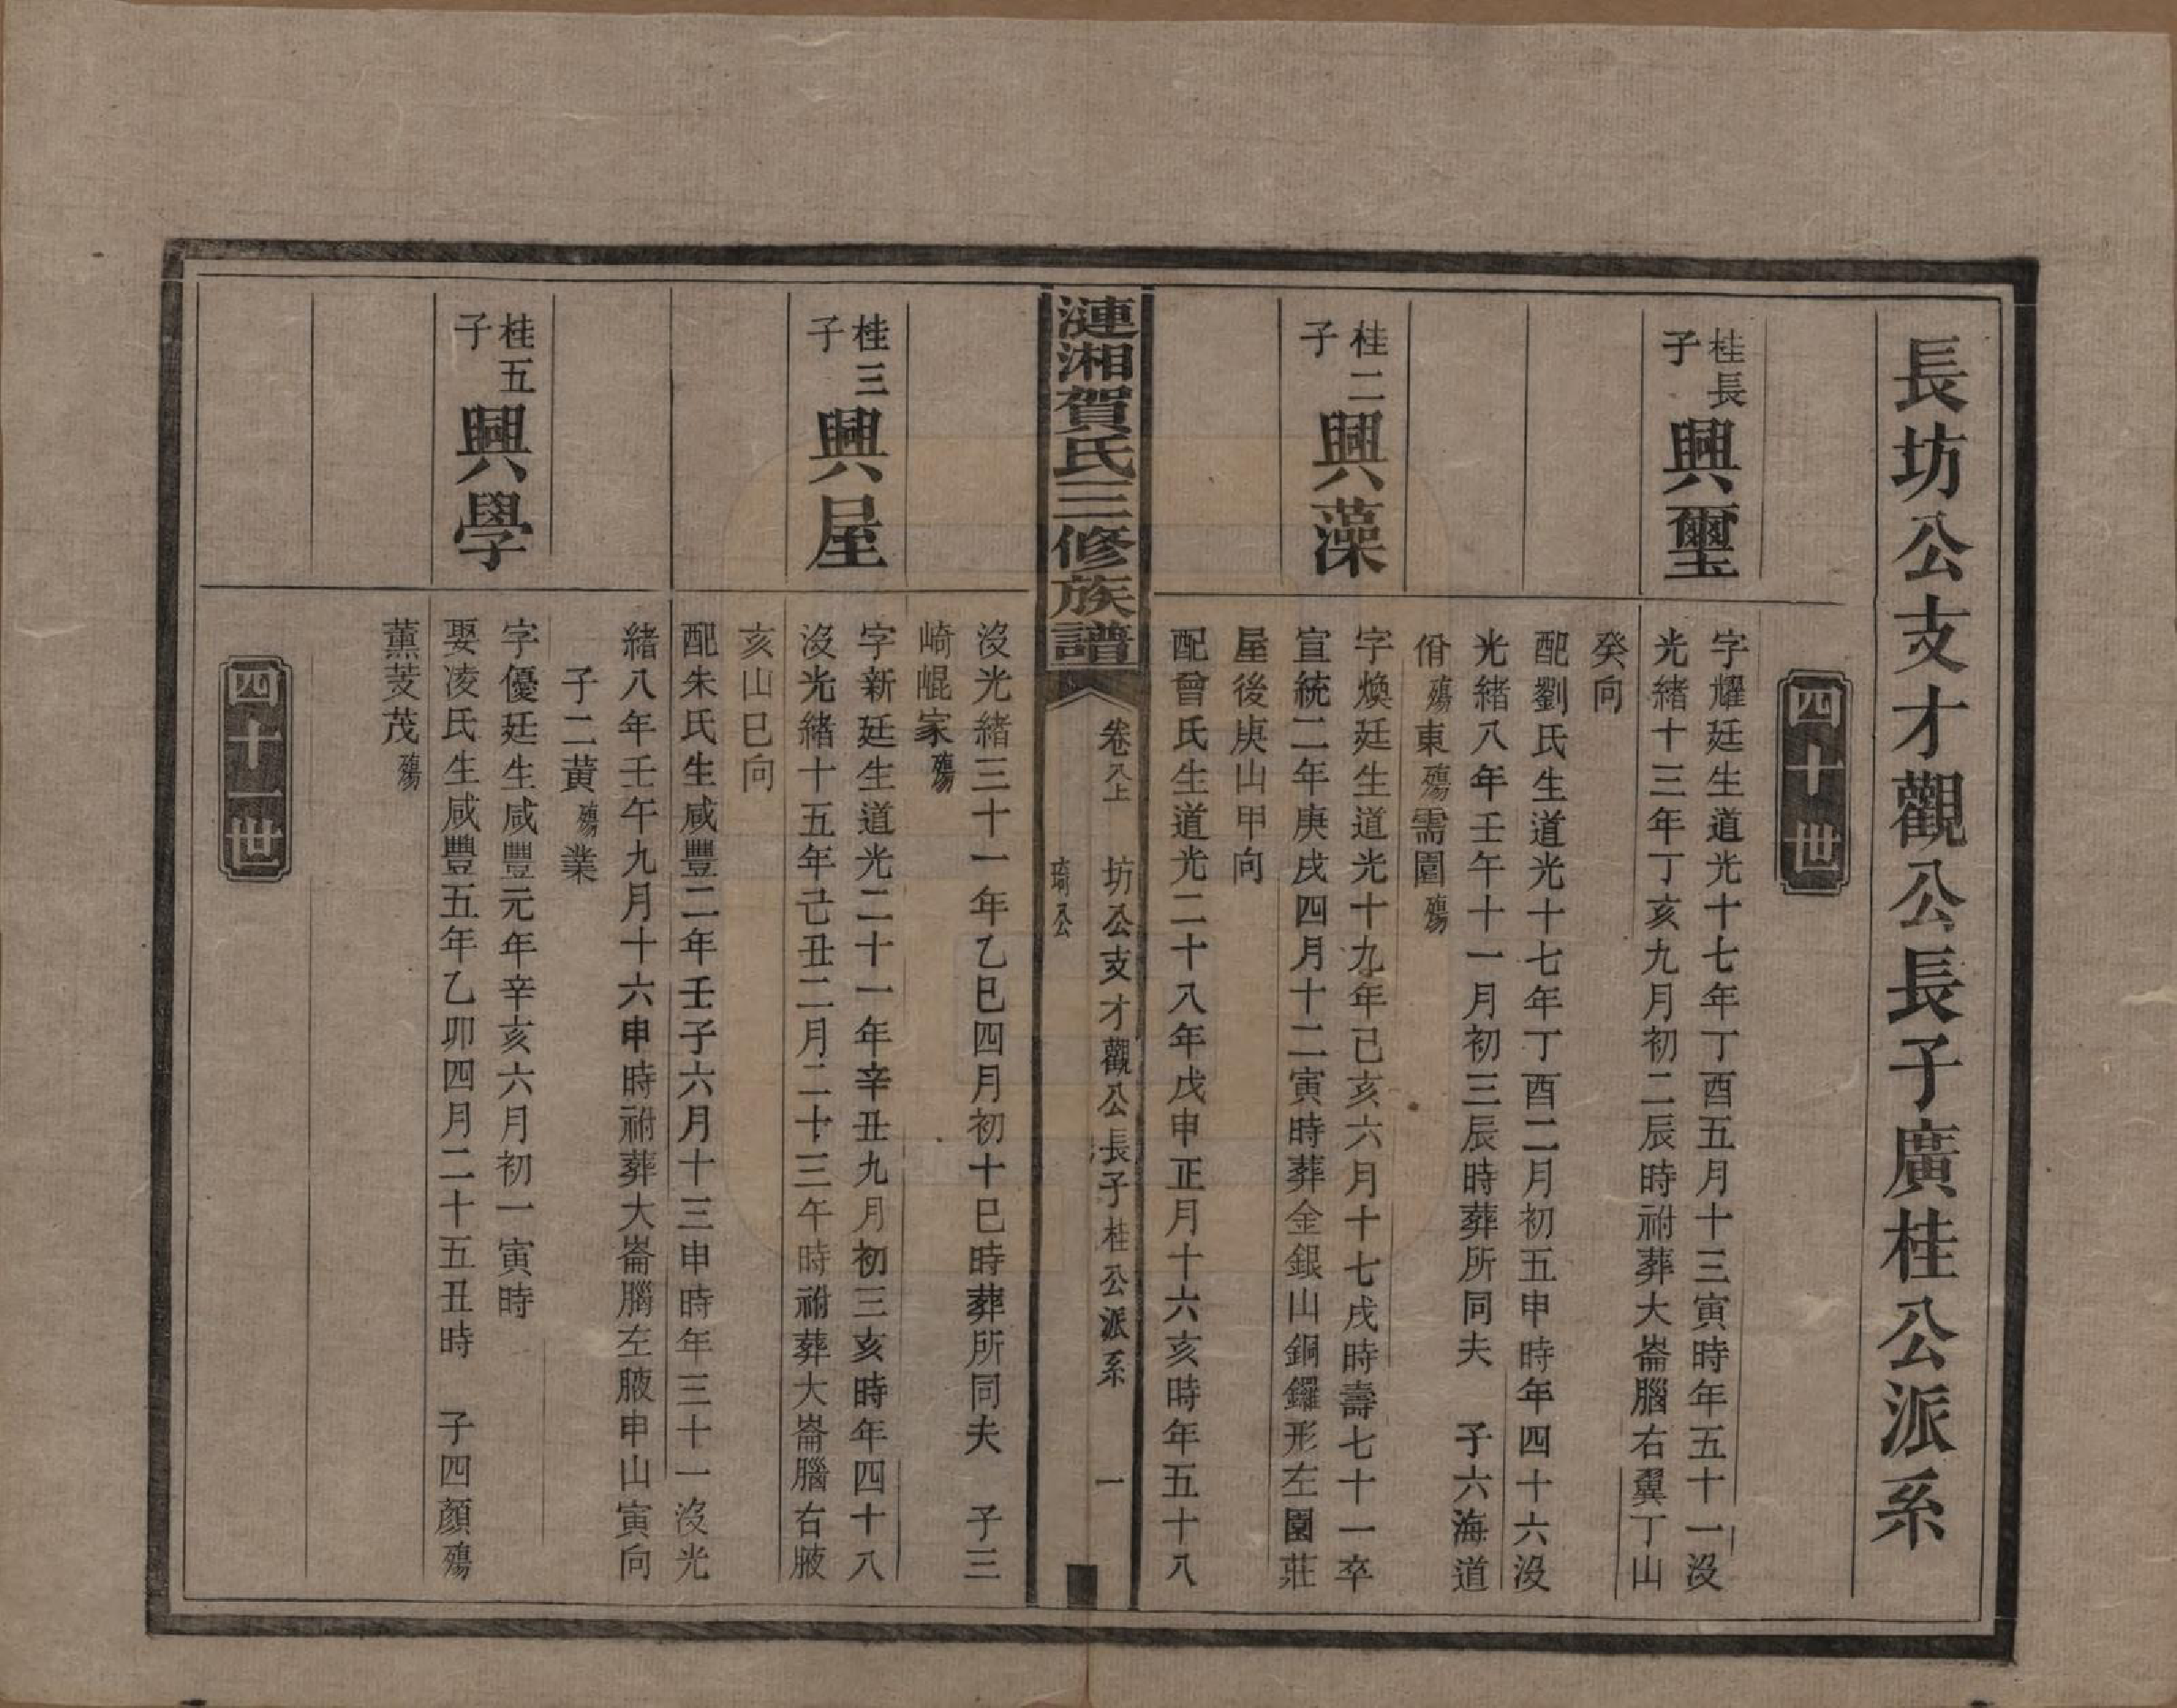 長坊公支才觀公長子廣桂公派系
四十世
桂長子 興璽
字燿廷生道光十七年丁酉五月十三寅時年五十一沒
光緒十三年丁亥九月初二辰時祔葬大崙腦右翼丁山
癸向
配劉氏生道光十七年丁酉二月初五申時年四十六沒
光緒八年壬午十一月初三辰時葬所同夫 子六海道
佾殤東殤需園殤
桂二子 興藻
字煥廷生道光十九年己亥六月十七戌時壽七十一卒
宣統二年庚戌四月十二寅時葬金銀山銅鑼形左園莊
屋後庚山甲向
配曾氏生道光二十八年戊申正月十六亥時年五十八
漣湘賀氏三修族譜
卷八上 坊公支才觀公長子桂公派系 一
琦公
沒光緒三十一年乙巳四月初十巳時葬所同夫 子三
崎崐家殤
桂三子 興屋
字新廷生道光二十一年辛丑九月初三亥時年四十八
沒光緒十五年己丑二月二十三午時祔葬大崙腦右腋
亥山巳向
配朱氏生咸豐二年壬子六月十三申時年三十一沒光
緒八年壬午九月十六申時祔葬大崙腦左腋申山寅向
子二黃殤業
桂五子 興學
字優廷生咸豐元年辛亥六月初一寅時
娶凌氏生咸豐五年乙卯四月二十五丑時 子四顏殤
薰芰茂殤
四十一世